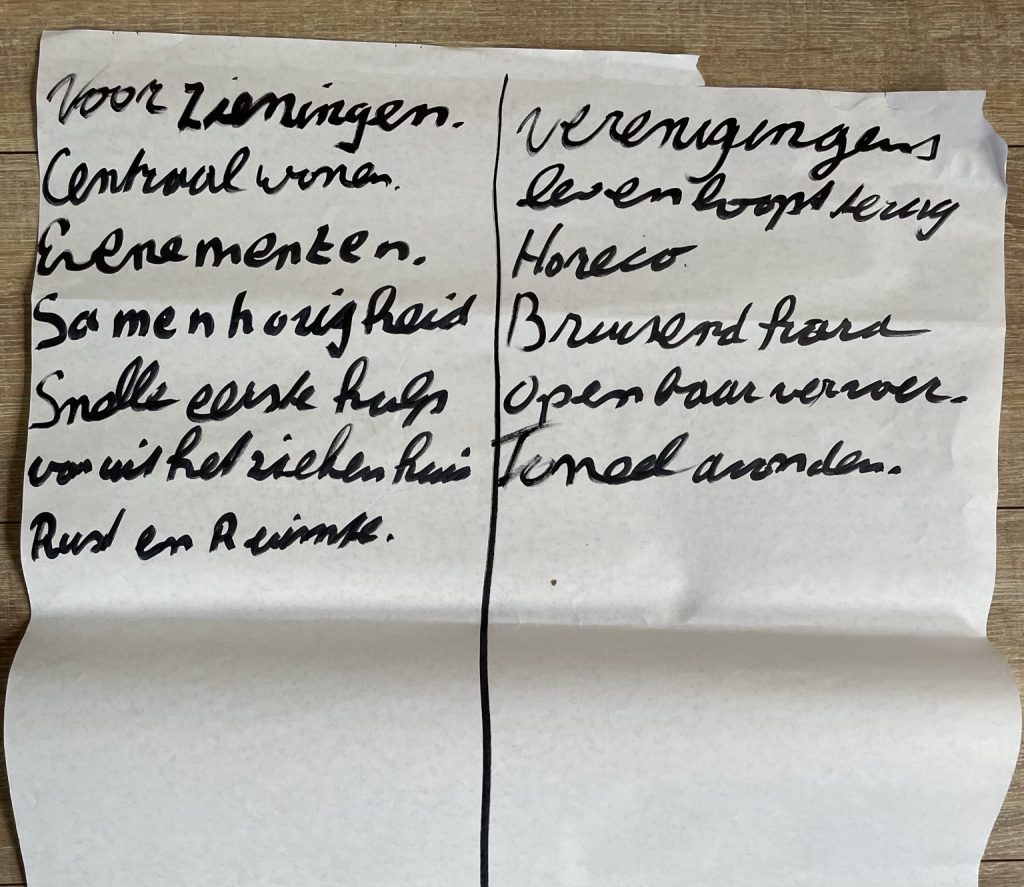 Voorzieningen.
Centraal wonen.
Evenementen.
Samenhorigheid
Snelle eerste hulp
van uit het ziekenhuis
Rust en Ruimte.
Verenigingens
leven loopt terug
Horeca.
Bruisend hard
openbaar vervoer.
Toneel avonden.